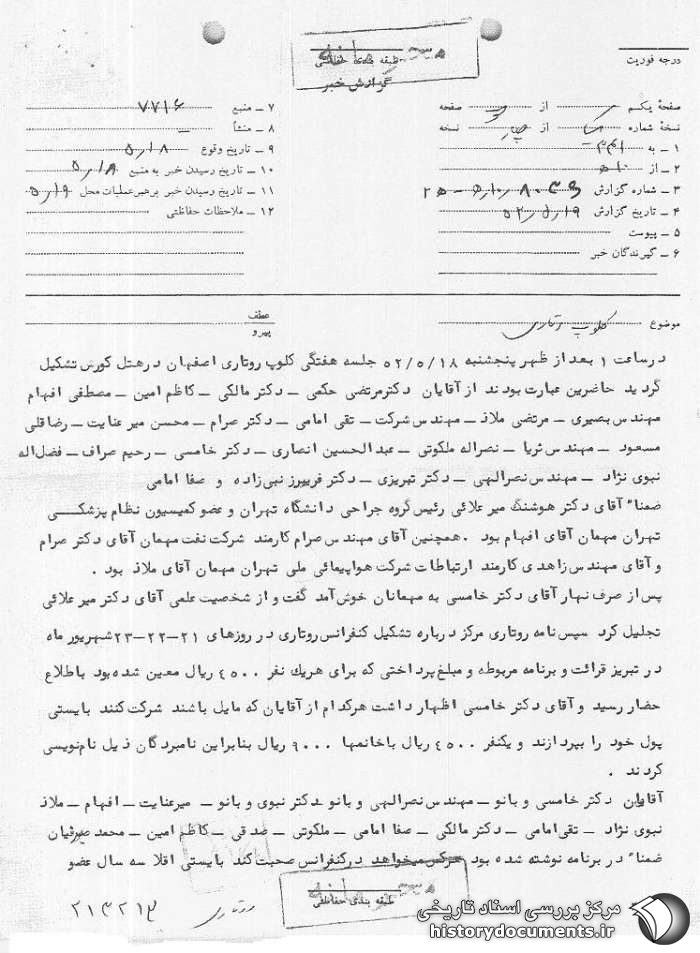 طبقه بندی حفاظتی
گزارش خبر
درجه فوریت
صفحهٔ یکم از صفحه
نسخهٔ شماره از چهار نسخه
۱ ـ به ۳۴۱
۲ ـ از ۱۰ه
۳ ـ شماره گزارش
۴ ـ تاریخ گزارش ۵۲/۵/۱۹
۵ ـ پیوست
۶ ـ گیرندگان خبر
۷ ـ منبع ۷۷۱۶
۸ ـ منشأ
۹ ـ تاریخ وقوع ۵/۱۸
۱۰ ـ تاریخ رسیدن خبر به منبع ۵/۱۸
۱۱ ـ تاریخ رسیدن خبر برهبر عملیات محل ۵/۱۹
۱۲ ـ ملاحظات حفاظتی
موضوع کلوپ روتاری
عطف
پیرو
درساعت ۱ بعد از ظهر پنجشنبه ۵۲/۵/۱۸ جلسه هفتگی کلوپ روتاری اصفهان در هتل کورش تشکیل
گردید حاضرین عبارت بودند از آقایان دکتر مرتضی حکمی ـ دکتر مالکی ـ کاظم امین ـ مصطفی افهام
مهندس بصیری ـ مرتضی ملاذ ـ مهندس شرکت ـ تقی امامی ـ دکتر صرام ـ محسن میر عنایت ـ رضاقلی
مسعود ـ مهندس ثریا ـ نصراله ملکوتی ـ عبدالحسین انصاری ـ دکتر خامسی ـ رحیم صراف ـ فضل‌اله
نبوی نژاد ـ مهندس نصرالهی ـ دکتر تبریزی ـ دکتر فریبرز نبی‌زاده و صفا امامی
ضمناً آقای دکتر هوشنگ میر علائی رئیس گروه جراحی دانشگاه تهران و عضو کمیسیون نظام پزشکی
تهران مهمان آقای افهام بود . همچنین آقای مهندس صرام کارمند شرکت نفت مهمان آقای دکتر صرام
و آقای مهندس زاهدی کارمند ارتباطات شرکت هواپیمائی ملی تهران مهمان آقای ملاذ بود .
پس از صرف نهار آقای دکتر خامسی به مهمانان خوش‌آمد گفت و از شخصیت علمی آقای دکتر میر علائی
تجلیل کرد سپس نامه روتاری مرکز درباره تشکیل کنفرانس روتاری در روزهای ۲۱-۲۲-۲۳ شهریور ماه
در تبریز قرائت و برنامه مربوطه و مبلغ پرداختی که برای هریك نفر ۴۵۰۰ ریال معین شده بود باطلاع
حضار رسید و آقای دکتر خامسی اظهار داشت هرکدام از آقایان که مایل باشند شرکت کنند بایستی
پول خود را بپردازند و یکنفر ۴۵۰۰ ریال باخانمها ۹۰۰۰ ریال بنابراین نامبردگان ذیل نام‌نویسی
کردند .
آقایان دکتر خامسی و بانو ـ مهندس نصرالهی و بانو دکتر نبوی و بانو ـ میرعنایت ـ افهام ـ ملاذ
نبوی نژاد ـ تقی امامی ـ دکتر مالکی ـ صفا امامی ـ ملکوتی ـ صدقی ـ کاظم امین ـ محمد
ضمناً در برنامه نوشته شده بود هرکس میخواهد درکنفرانس صحبت کند بایستی اقلا سه سال عضو
طبقه بندی حفاظتی
روتاری
۲۱۳۲۱۲
مرکز بررسی اسناد تاریخی
historydocuments.ir